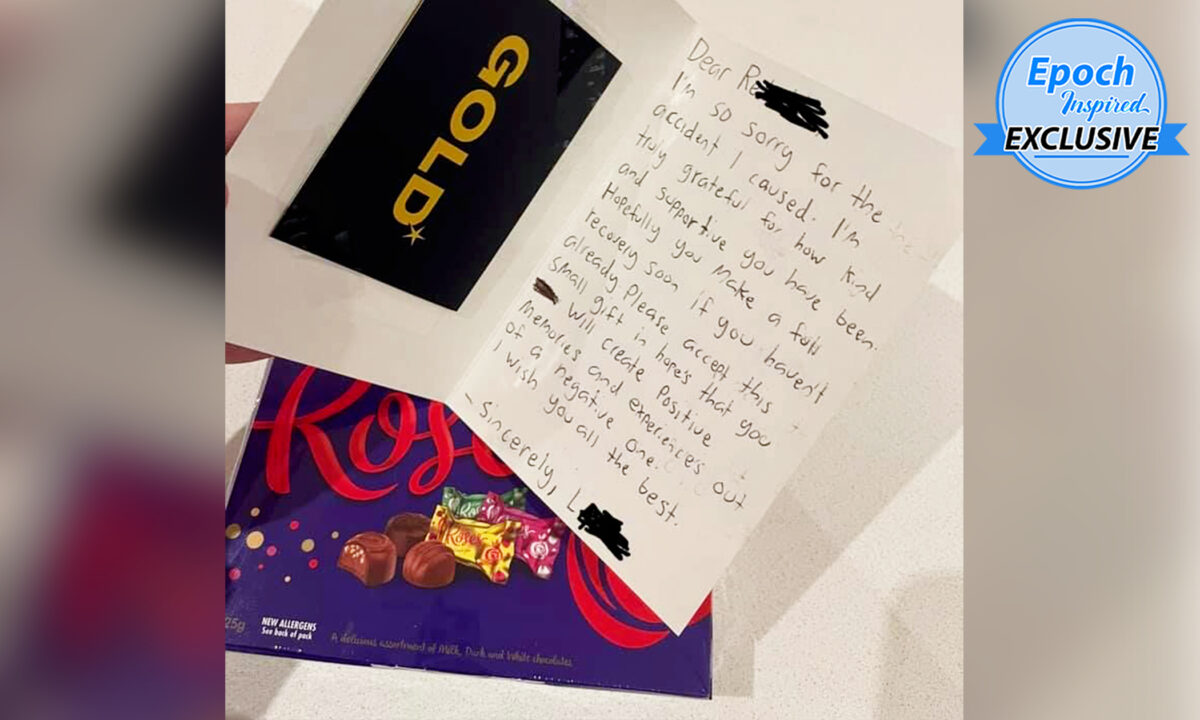 Epoch
Inspired
EXCLUSIVE
GOLD
Dear Re
I'm so sorry for the
accident I caused. I'm
truly grateful for how kind
and supportive you have been.
Hopefully you make a full
recovery soon if you haven't
already Please accept this
small gift in hope's that you
will create Positive
memories and experience's out
of a negative one.
I wish you all the best.
- Sincerely, L
Roses
Roses
25g
NEW ALLERGENS
See back of pack
A delicious assortment of Milk, Dark and White chocolates